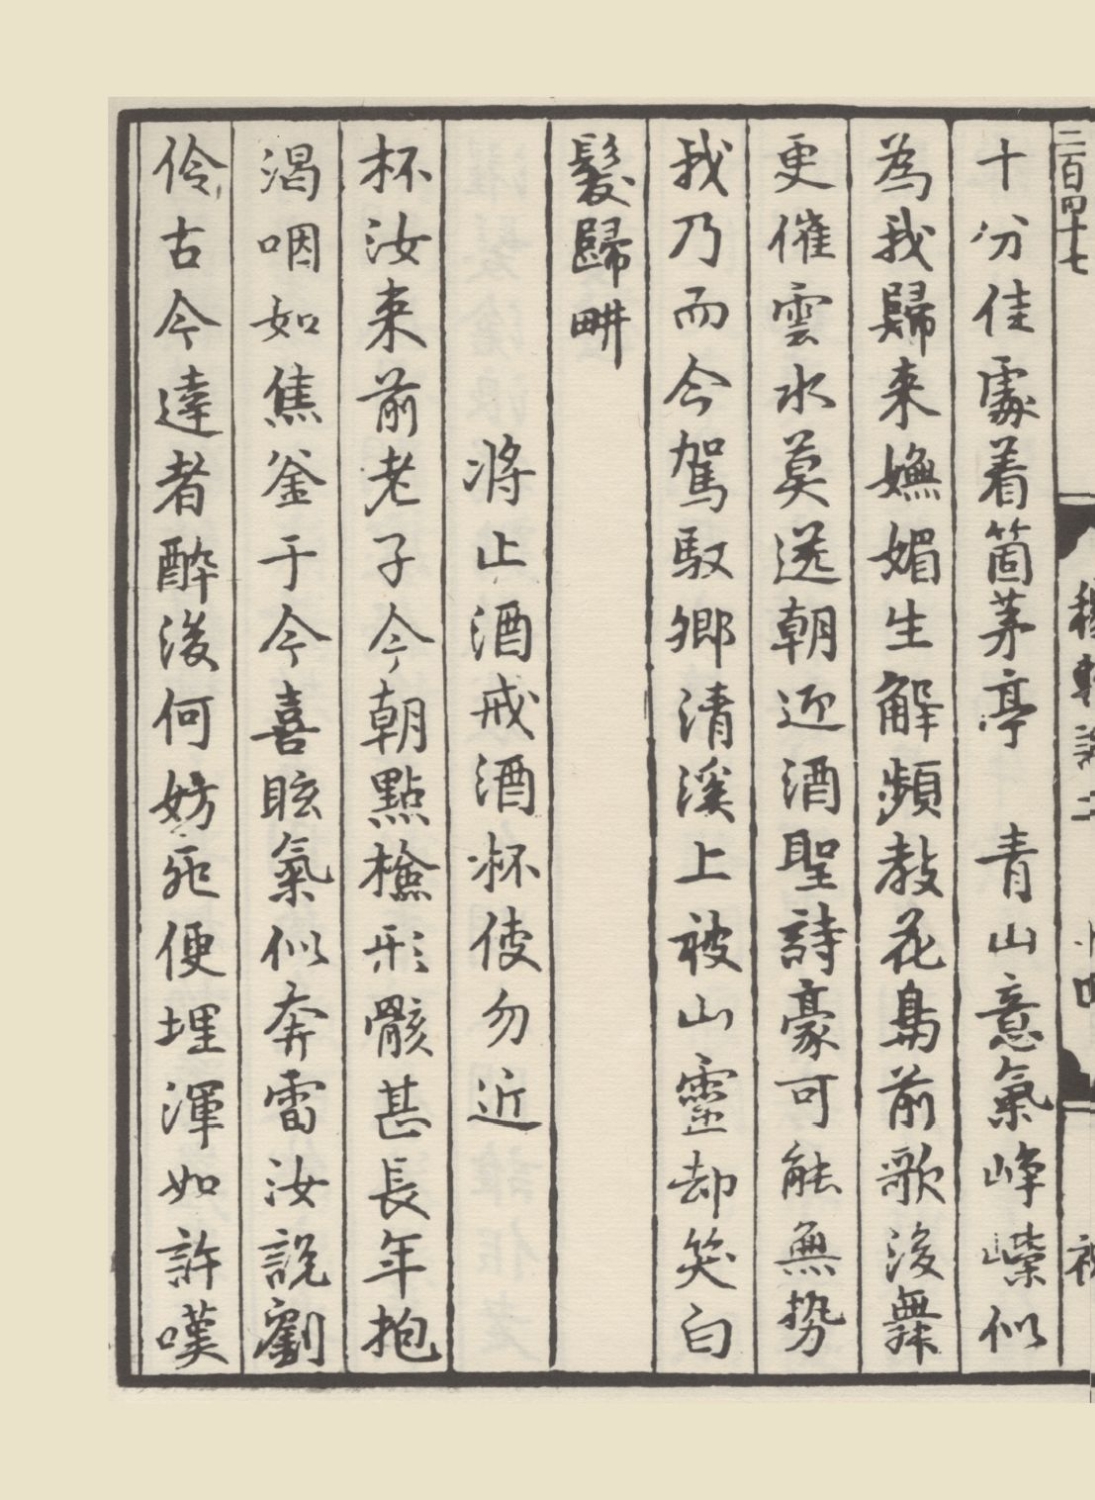 二百四十七
十分佳處着箇茅亭　青山意氣崢嶸似
為我歸来嫵媚生解頻教花鳥前歌後舞
更催雲水莫送朝迎酒聖詩豪可能無勢
我乃而今駕馭卿清溪上被山靈却笑白
髮歸畊
將止酒戒酒杯使勿近
杯汝来前老子今朝點檢形骸甚長年抱
渴咽如焦釜于今喜眩氣似奔雷汝説劉
伶古今達者醉後何妨死便埋渾如許嘆